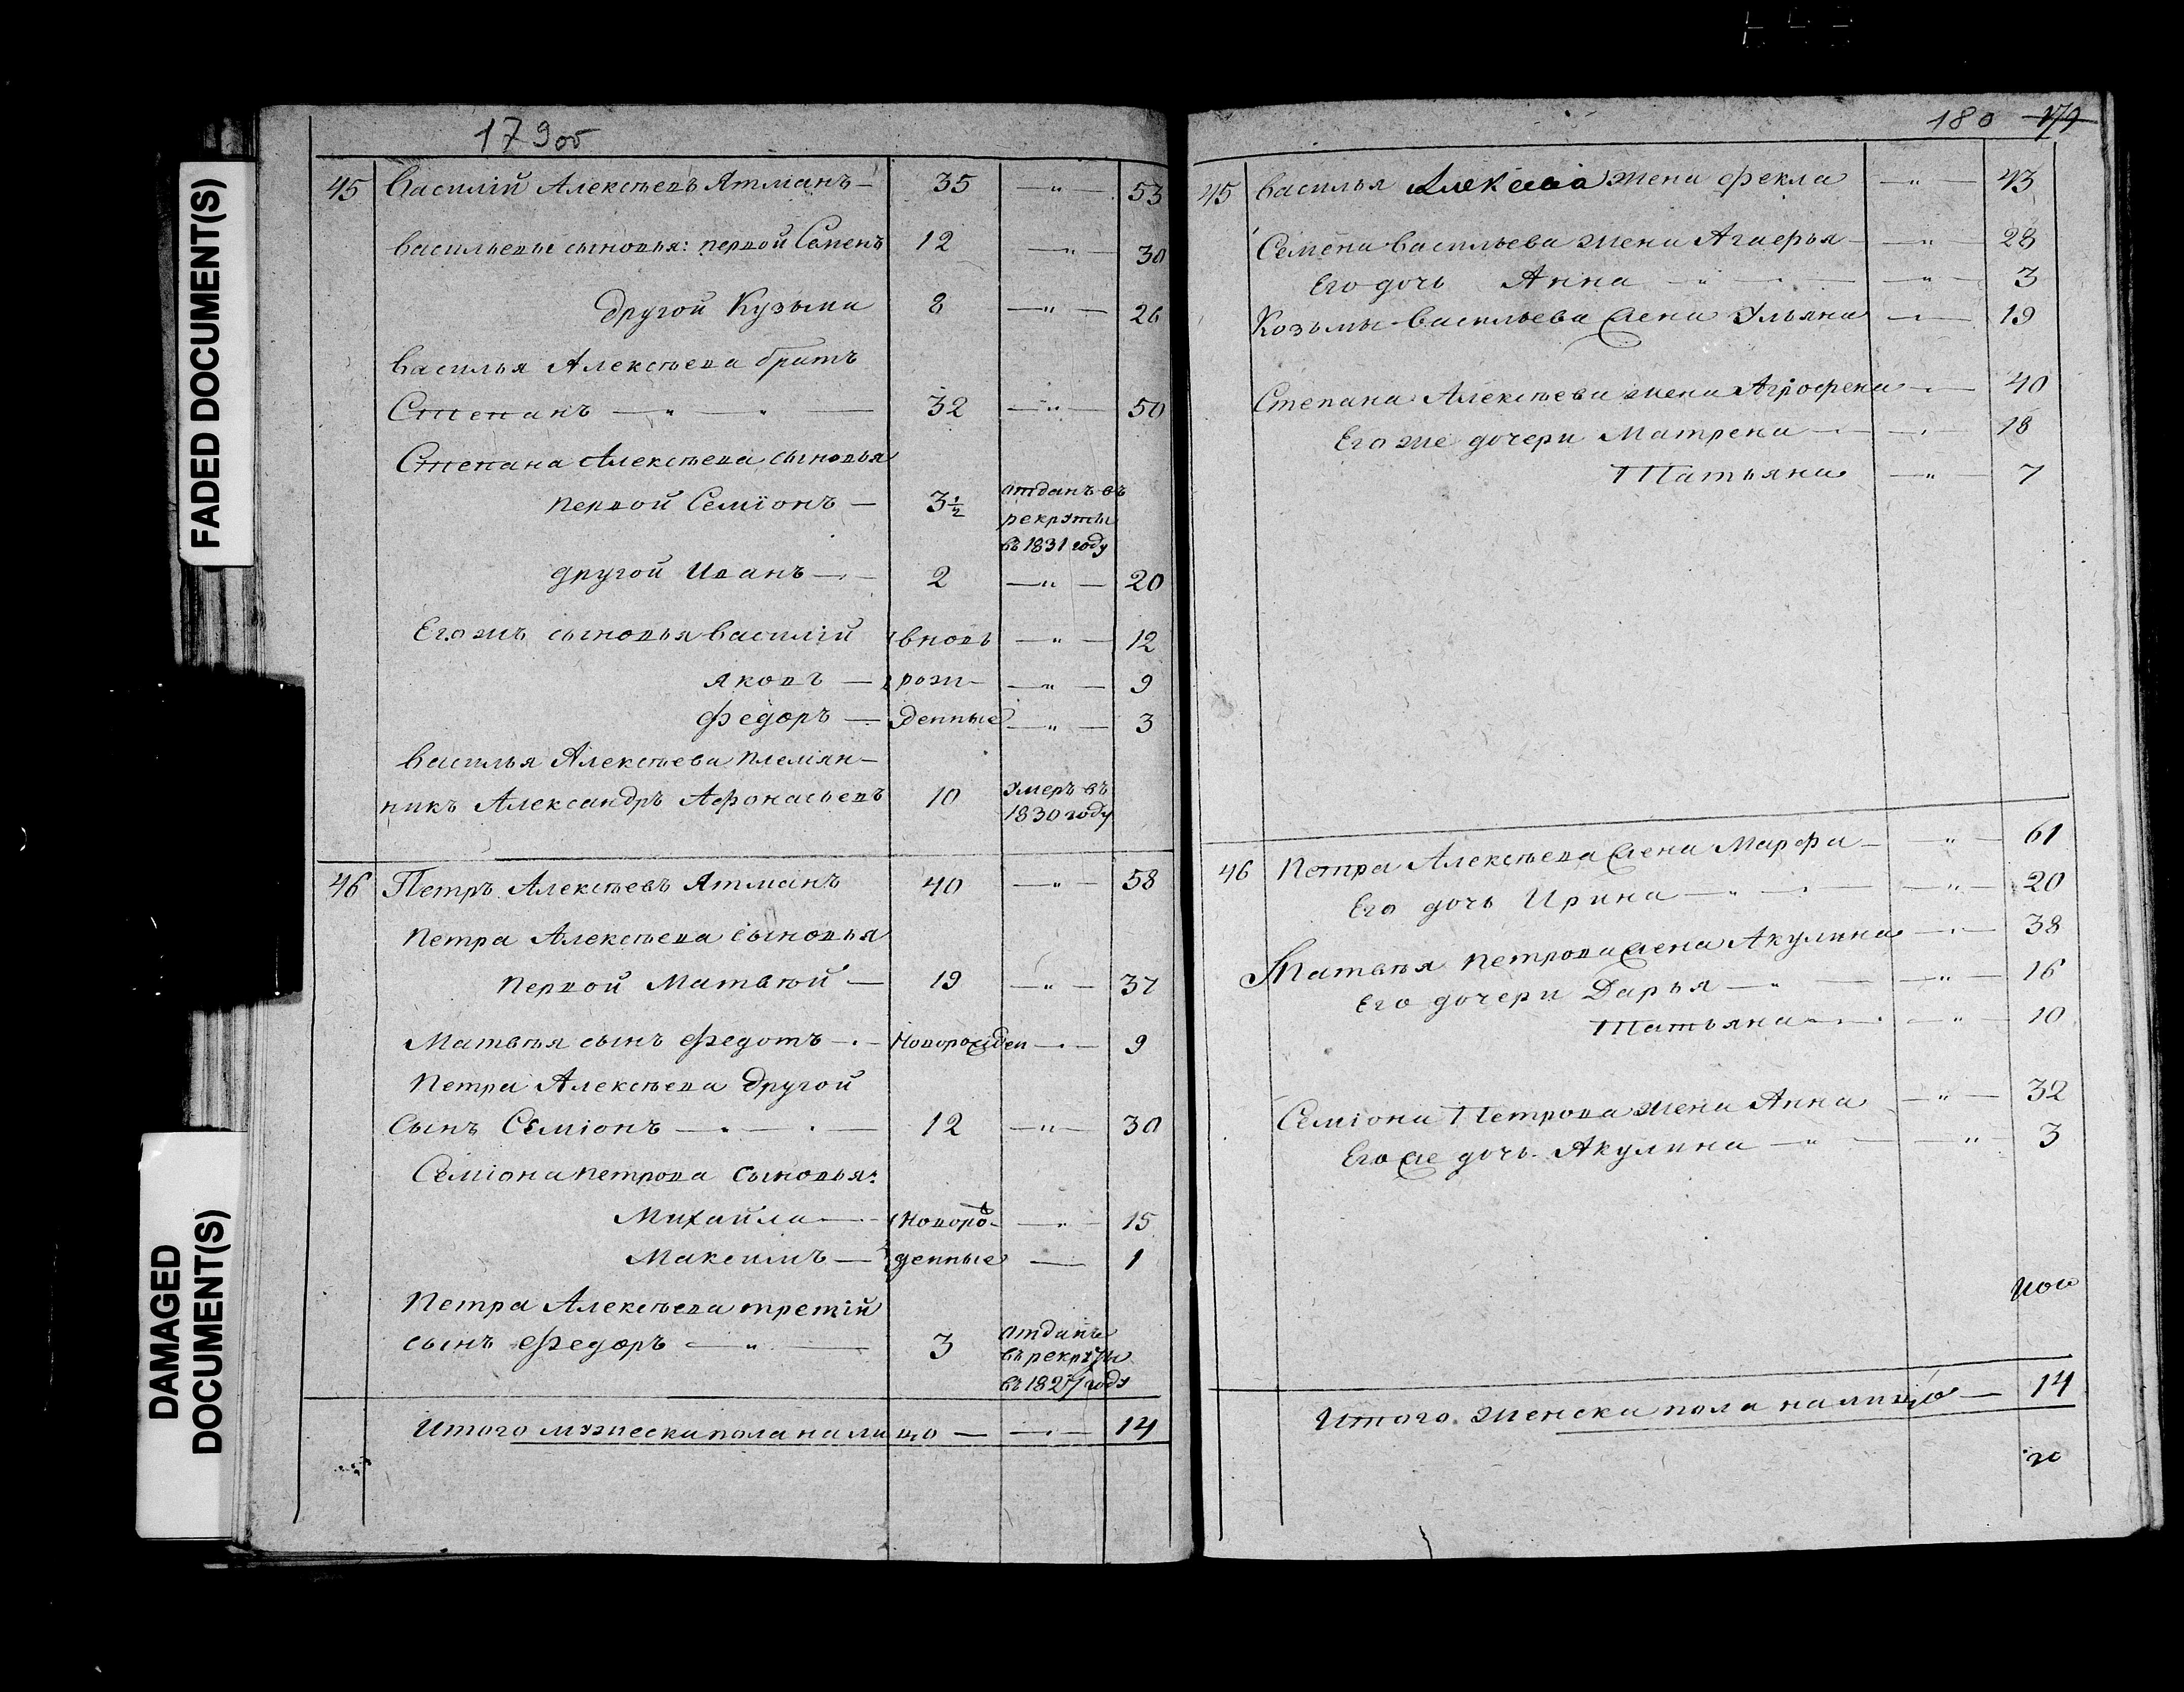 FADED DOCUMENT(S)
DAMAGED
DOCUMENT(S)
179об
45 Василій Алексѣевъ Ятманъ — 35 — " — 53
Васильевы сыновья: первой Семенъ 12 — " — 30
другой Кузьма 8 — " — 26
Василья Алексѣева братъ
Степанъ — " — " — 32 — " — 50
Степана Алексѣева сыновья
первой Семіонъ — 3½ отданъ въ
рекруты
въ 1831 году
другой Иванъ — 2 — " — 20
Его жъ сыновья Василій вновь — " — 12
Яковъ — рож- — " — 9
Федоръ — денные — " — 3
Василья Алексѣева племян-
никъ Александръ Афонасьевъ 10 умеръ въ
1830 году
46 Петръ Алексѣевъ Ятманъ 40 — " — 58
Петра Алексѣева сыновья
первой Матвѣй — 19 — " — 37
Матвѣя сынъ Федотъ — Новорожден — " — 9
Петра Алексѣева другой
сынъ Семіонъ — " — 12 — " — 30
Семіона Петрова сыновья:
Михайла — Новорож- — " — 15
Максимъ — денные — 1
Петра Алексѣева третій
сынъ Федоръ — " — 3 отданъ
въ рекруты
въ 1827 году
Итого мужеска пола на лицо — — " — 14
180 179
45 Василья Алексѣева жена Фекла — " — 43
Семена Васильева жена Агаѳья — " — 28
Его дочь Анна — " — — " — 3
Козьмы Васильева жена Ульяна — " — 19
Степана Алексѣева жена Аграфена — " — 40
Его же дочери Матрена — — " — 18
Татьяна — " — 7
46 Петра Алексѣева жена Марфа — " — 61
Его дочь Ирина — " — — " — 20
Матвѣя Петрова жена Акулина — " — 38
Его дочери Дарья — " — — " — 16
Татьяна — " — — " — 10
Семіона Петрова жена Анна — " — 32
Его же дочь Акулина — " — — " — 3
Итого женска пола на лицо — 14